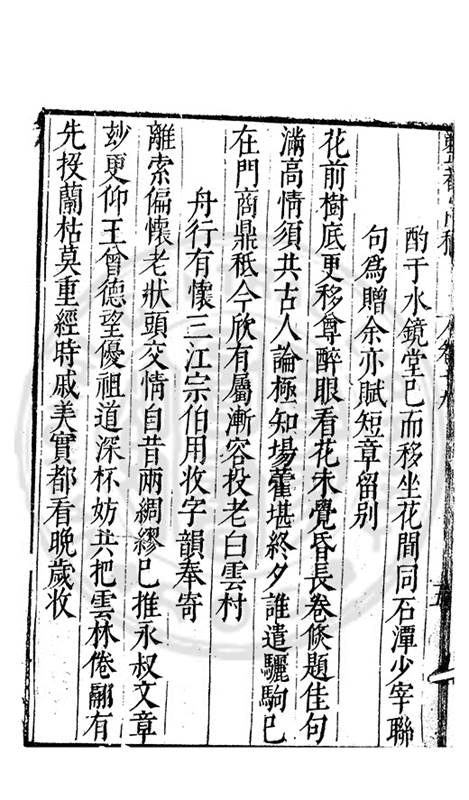 酌于水鏡堂巳而移坐花間同石潭少宰聯
句爲贈余亦賦短章留别
花前樹底更移尊醉眼看花未覺昏長卷倐題佳句
滿高情須共古人論極知場藿堪終夕誰遣驪駒巳
在門商鼎秪今欣有屬漸容投老白雲村
舟行有懷三江宗伯用收字韻奉寄
離索偏懷老狀頭交情自昔兩綢繆巳推永叔文章
玅更仰王曾德望優祖道深杯妨共把雲林倦翮有
先投蘭枯莫重經時戚美實都看晚歲收